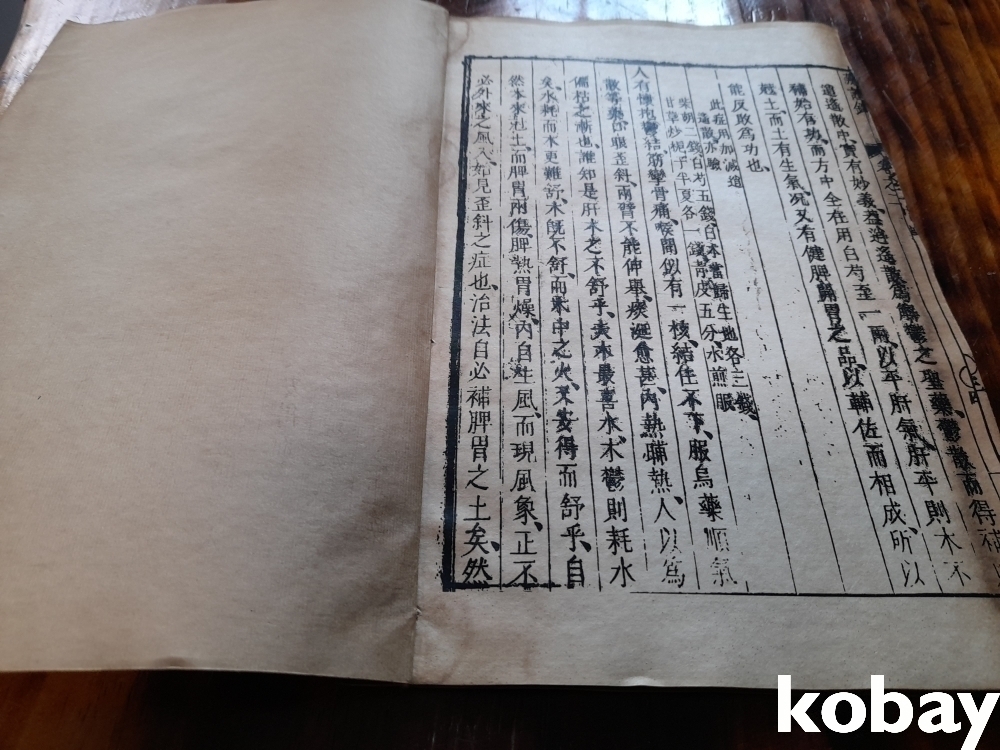 卷之二
逍遙散中實有妙義、蓋逍遙散爲解鬱之聖藥、鬱散而得補
補始有功、而方中全在用白芍至一兩、以平肝氣、肝平則木不
尅土、而土有生氣、况又有健脾開胃之品、以輔佐而相成、所以
能反敗爲功也、
此症用加減逍
遙散亦驗
柴胡二錢白芍五錢白朮當歸生地各三錢、
甘草炒梔子半夏各一錢青皮五分水煎服
人有懷抱鬱結、筋攣骨痛、喉間似有一核、結住不下、服烏藥順氣
散等藥、口眼歪斜、兩臂不能伸舉、痰涎愈甚、內熱晡熱、人以爲
偏枯之漸也、誰知是肝木之不舒乎、夫木最喜水、木鬱則耗水
矣、水耗而木更難舒、木既不舒、而木中之火、又安得而舒乎、自
然木來尅土、而脾胃兩傷、脾熱胃燥、內自生風、而現風象、正不
必外來之風入、始見歪斜之症也、治法自必補脾胃之土矣、然
kobay